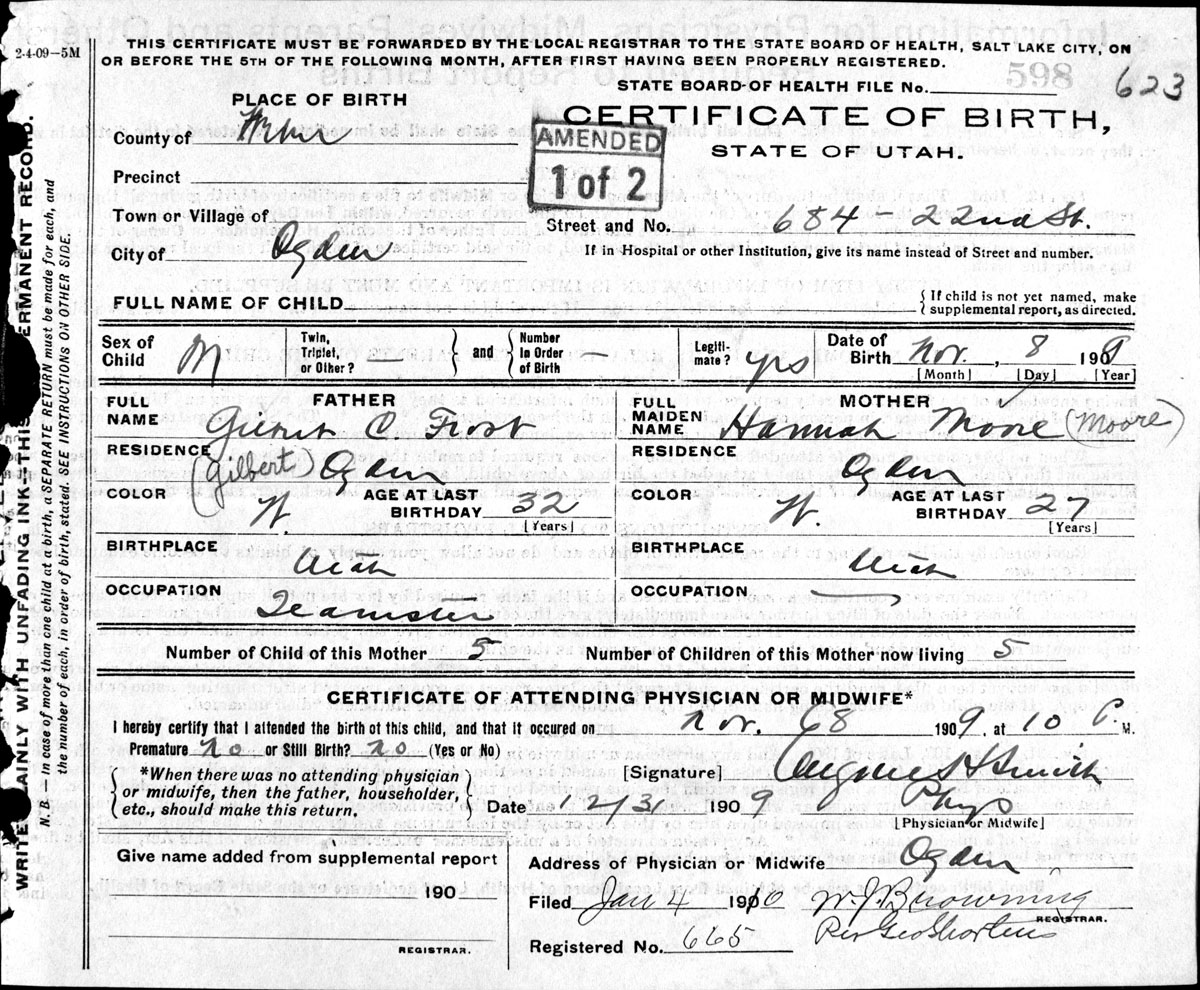 2-4-09-5M
THIS CERTIFICATE MUST BE FORWARDED BY THE LOCAL REGISTRAR TO THE STATE BOARD OF HEALTH, SALT LAKE CITY, ON
OR BEFORE THE 5TH OF THE FOLLOWING MONTH, AFTER FIRST HAVING BEEN PROPERLY REGISTERED.
598
623
STATE BOARD OF HEALTH FILE No.
PLACE OF BIRTH
CERTIFICATE OF BIRTH,
STATE OF UTAH.
AMENDED
1 of 2
County of
Precinct
Town or Village of
Street and No. 684-22nd St.
City of Ogden
If in Hospital or other Institution, give its name instead of Street and number.
FULL NAME OF CHILD
If child is not yet named, make
supplemental report, as directed.
Sex of Child M
Twin, Triplet, or Other?
and
Number In Order of Birth
Legiti-mate? yes
Date of Birth Nov. 8 190
[Month] [Day] [Year]
FATHER
FULL NAME C Frost
(Gilbert)
RESIDENCE Ogden
COLOR W.
AGE AT LAST BIRTHDAY 32
[Years]
BIRTHPLACE Utah
OCCUPATION Teamster
MOTHER
FULL MAIDEN NAME Hannah Moore (Moore)
RESIDENCE Ogden
COLOR W.
AGE AT LAST BIRTHDAY 27
[Years]
BIRTHPLACE Utah
OCCUPATION
Number of Child of this Mother 5
Number of Children of this Mother now living 5
CERTIFICATE OF ATTENDING PHYSICIAN OR MIDWIFE*
I hereby certify that I attended the birth of this child, and that it occured on Nov. 8 1909, at 10 P. M.
Premature no or Still Birth? no (Yes or No)
*When there was no attending physician
or midwife, then the father, householder,
etc., should make this return.
[Signature] Smith
Date 12/31 1909 Phys
[Physician or Midwife]
Give name added from supplemental report
190
REGISTRAR.
Address of Physician or Midwife Ogden
Filed Jan 4 1910 W. J. Browning
REGISTRAR.
Registered No. 665 Per Geo
WRITE PLAINLY WITH UNFADING INK—THIS PERMANENT RECORD.
N. B.—In case of more than one child at a birth, a SEPARATE RETURN must be made for each, and
the number of each, in order of birth, stated. SEE INSTRUCTIONS ON OTHER SIDE.